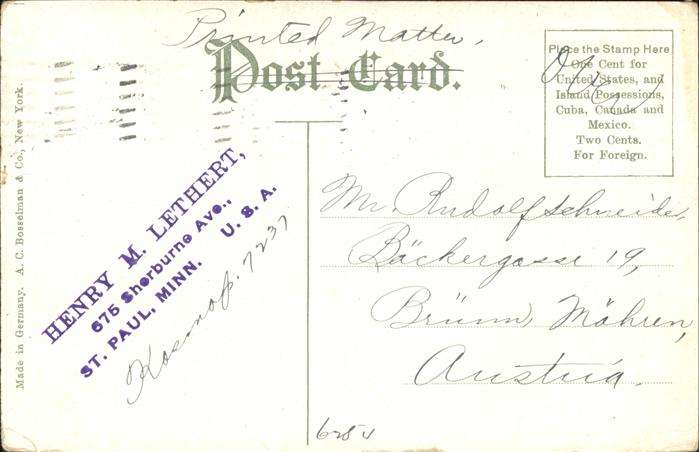 Printed Matter.
Post Card.
Place the Stamp Here
One Cent for
United States, and
Island Possessions,
Cuba, Canada and
Mexico.
Two Cents.
For Foreign.
Over
Made in Germany. A. C. Bosselman & Co., New York.
HENRY M. LETHERT,
675 Sherburne Ave.,
ST. PAUL, MINN. U. S. A.
Kosmop. 7237
Mr. Rudolf Schneider,
Bäckergasse 19,
Brünn, Möhren,
Austria.